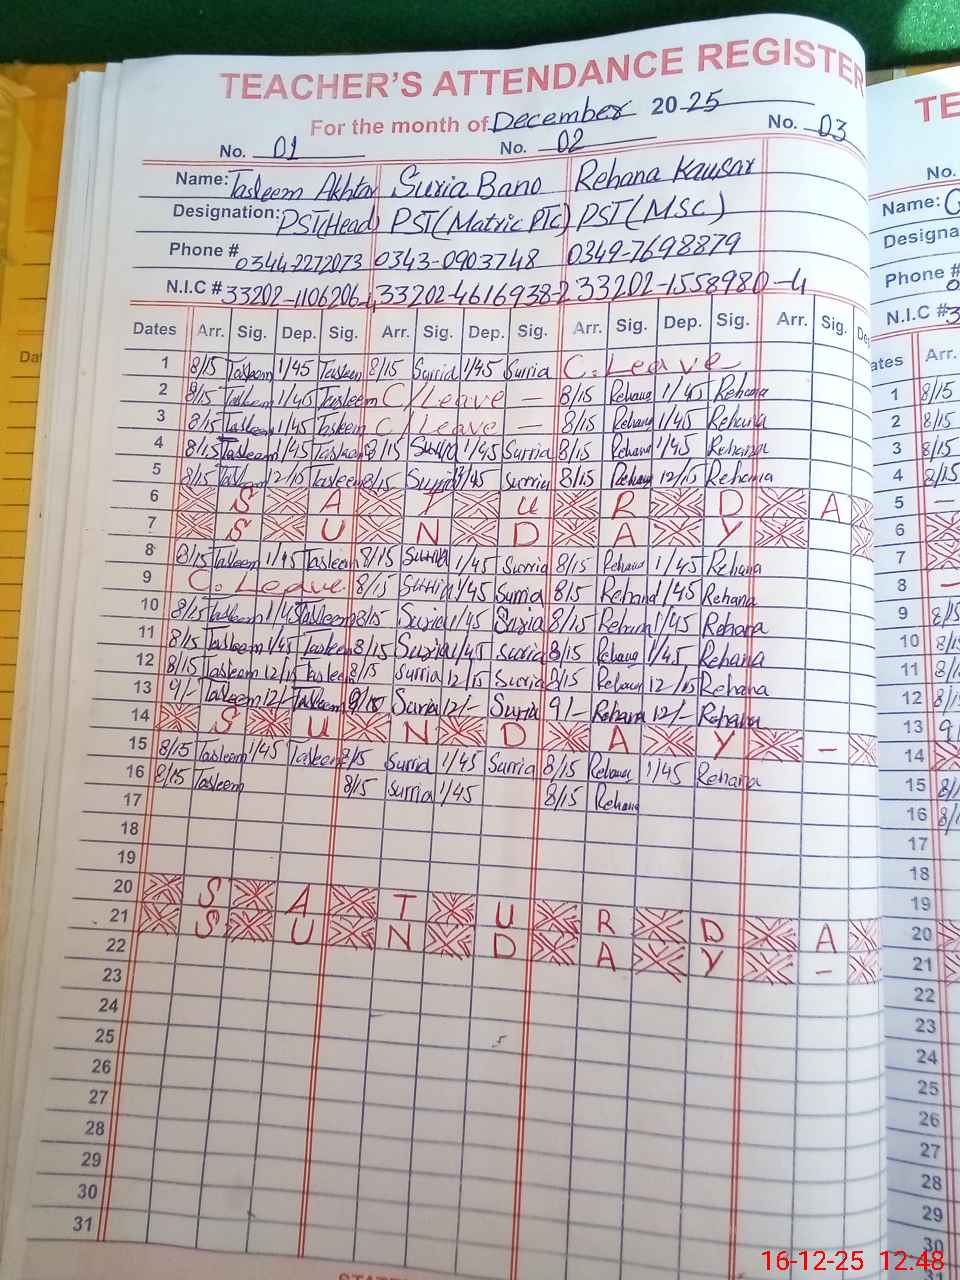 TEACHER'S ATTENDANCE REGISTER
For the month of December 2025
No. 01 No. 02 No. 03
Name: Tasleem Akhtar Surria Bano Rehana Kausar
Designation: PST(Head) PST(Matric PTC) PST(MSC)
Phone # 0344-2272073 0343-0903748 0349-7698879
N.I.C # 33202-1106206-4 33202-4616938-2 33202-1558980-4
Dates Arr. Sig. Dep. Sig. Arr. Sig. Dep. Sig. Arr. Sig. Dep. Sig. Arr. Sig.
1 8/15 Tasleem 1/45 Tasleem 8/15 Surria 1/45 Surria C. Leave
2 8/15 Tasleem 1/45 Tasleem C/Leave — 8/15 Rehana 1/45 Rehana
3 8/15 Tasleem 1/45 Tasleem C/Leave — 8/15 Rehana 1/45 Rehana
4 8/15 Tasleem 1/45 Tasleem 8/15 Surria 1/45 Surria 8/15 Rehana 1/45 Rehana
5 8/15 Tasleem 12/15 Tasleem 8/15 Surria Surria 8/15 Rehana 12/15 Rehana
6 S A T U R D A
7 S U N D A Y
8 8/15 Tasleem 1/45 Tasleem 8/15 Surria 1/45 Surria 8/15 Rehana 1/45 Rehana
9 C. Leave 8/15 Surria 1/45 Surria 8/15 Rehana 1/45 Rehana
10 8/15 Tasleem 1/45 Tasleem 8/15 Surria 1/45 Surria 8/15 Rehana 1/45 Rehana
11 8/15 Tasleem 1/45 Tasleem 8/15 Surria 1/45 Surria 8/15 Rehana 1/45 Rehana
12 8/15 Tasleem 12/15 Tasleem 8/15 Surria 12/15 Surria 8/15 Rehana 12/15 Rehana
13 9/- Tasleem 12/- Tasleem Surria 12/- Surria 9/- Rehana 12/- Rehana
14 S U N D A Y -
15 8/15 Tasleem 1/45 Tasleem 8/15 Surria 1/45 Surria 8/15 Rehana 1/45 Rehana
16 8/15 Tasleem 8/15 Surria 1/45 8/15 Rehana
17
18
19
20 S A T U R D A
21 S U N D A Y -
22
23
24
25
26
27
28
29
30
31
No.
Name:
Phone #
N.I.C #
Arr.
1 8/15
2 8/15
3 8/15
4 8/15
5 —
6
7
8 —
9 8/15
10 8/15
11 8/15
12 8/15
13
14
15 8/15
16
17
18
19
20
21
22
23
24
25
26
27
28
29
30
16-12-25 12:48